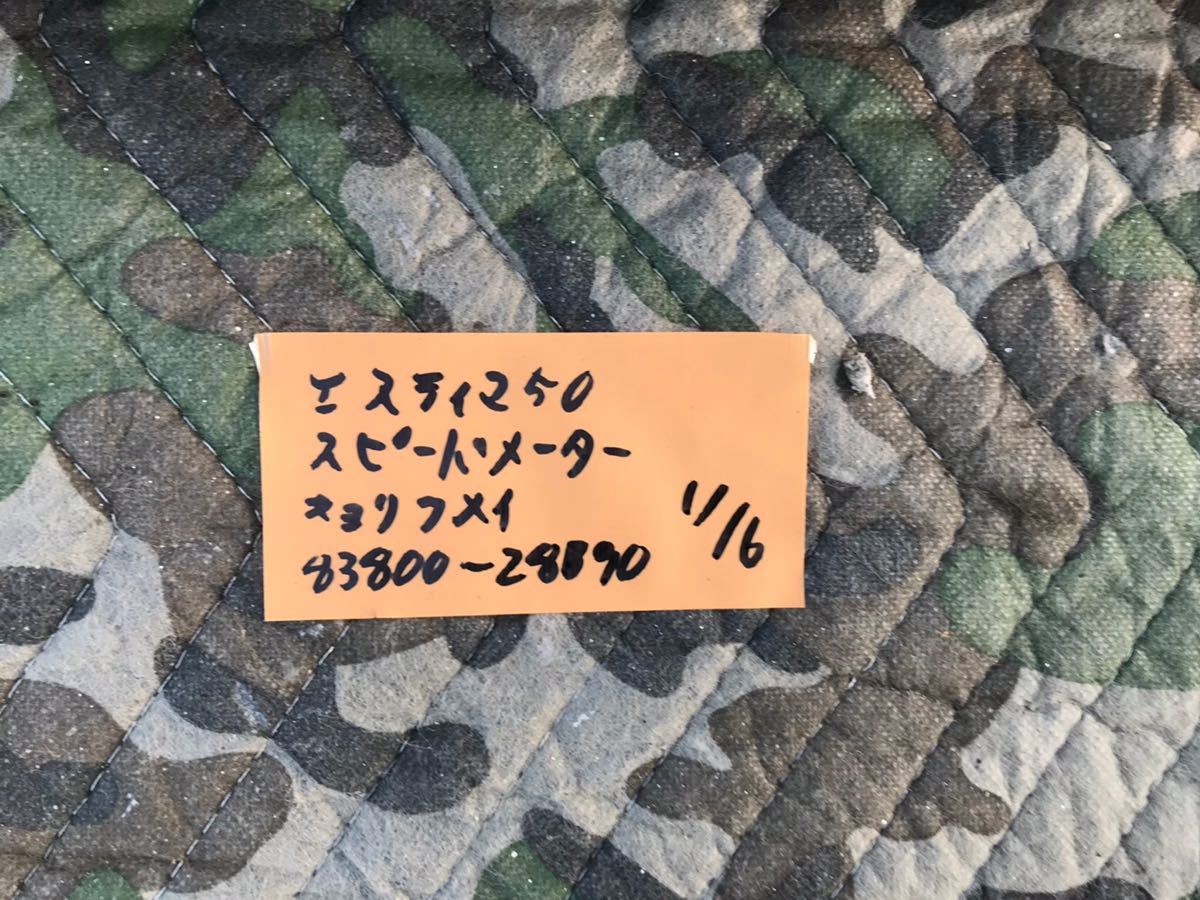 エスティマ50
スピードメーター
キョリフメイ
83800-28B90
11/6